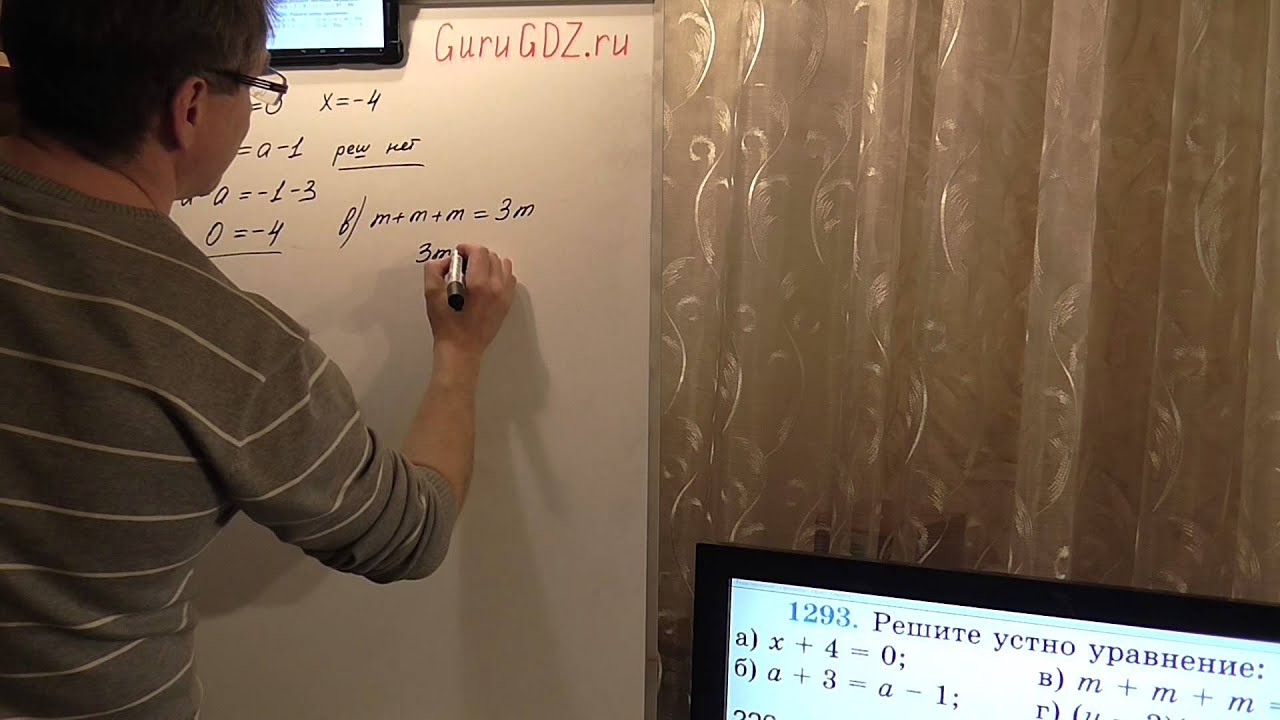 GuruGDZ.ru
x=-4
= a-1 реш нет
a =-1-3
0 =-4
в) m+m+m = 3m
3m
1293. Решите устно уравнение:
а) x + 4 = 0;
б) a + 3 = a − 1;
в) m + m + m =
г)